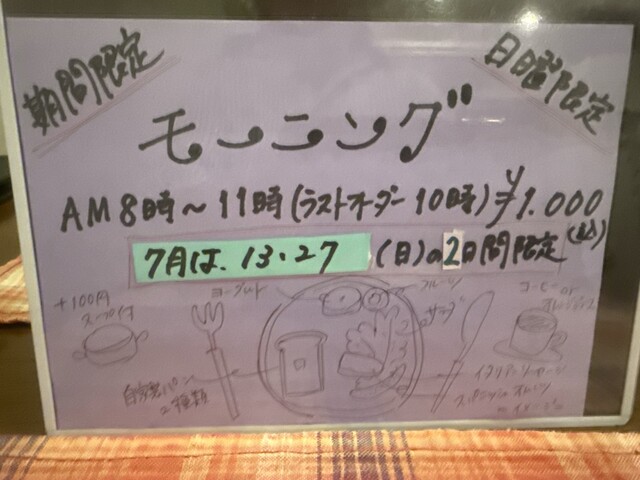 期間限定
日曜限定
モーニング
AM 8時～11時(ラストオーダー 10時) ¥1.000
(税込)
7月は、13・27 (日)の2日間限定
+100円
スープ付
ヨーグルト
フルーツ
サラダ
コーヒー or
オレンジジュース
自家製パン
2種類
イタリアンソーセージ
スパニッシュオムレツ